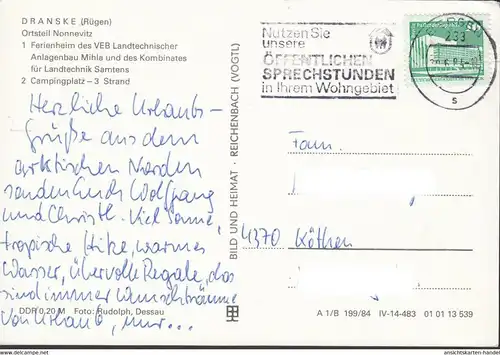 DRANSKE (Rügen)
Ortsteil Nonnevitz
1 Ferienheim des VEB Landtechnischer
Anlagenbau Mihla und des Kombinates
für Landtechnik Samtens
2 Campingplatz – 3 Strand
Herzliche Urlaubs-
grüße aus dem
arktischen Norden
senden Euch Wolfgang
und Christl. Viel Sonne,
tropische Hitze, warmes
Wasser, übervolle Regale, das
sind immer Wunschträume
von Urlaub, nur...
DDR 0,20 M Foto: Rudolph, Dessau
BILD UND HEIMAT · REICHENBACH (VOGTL)
Nutzen Sie
unsere
ÖFFENTLICHEN
SPRECHSTUNDEN
in Ihrem Wohngebiet
233
s
Fam.
4370 Köthen
A 1/B 199/84 IV-14-483 01 01 13 539
ansichtskarten-haendler.de